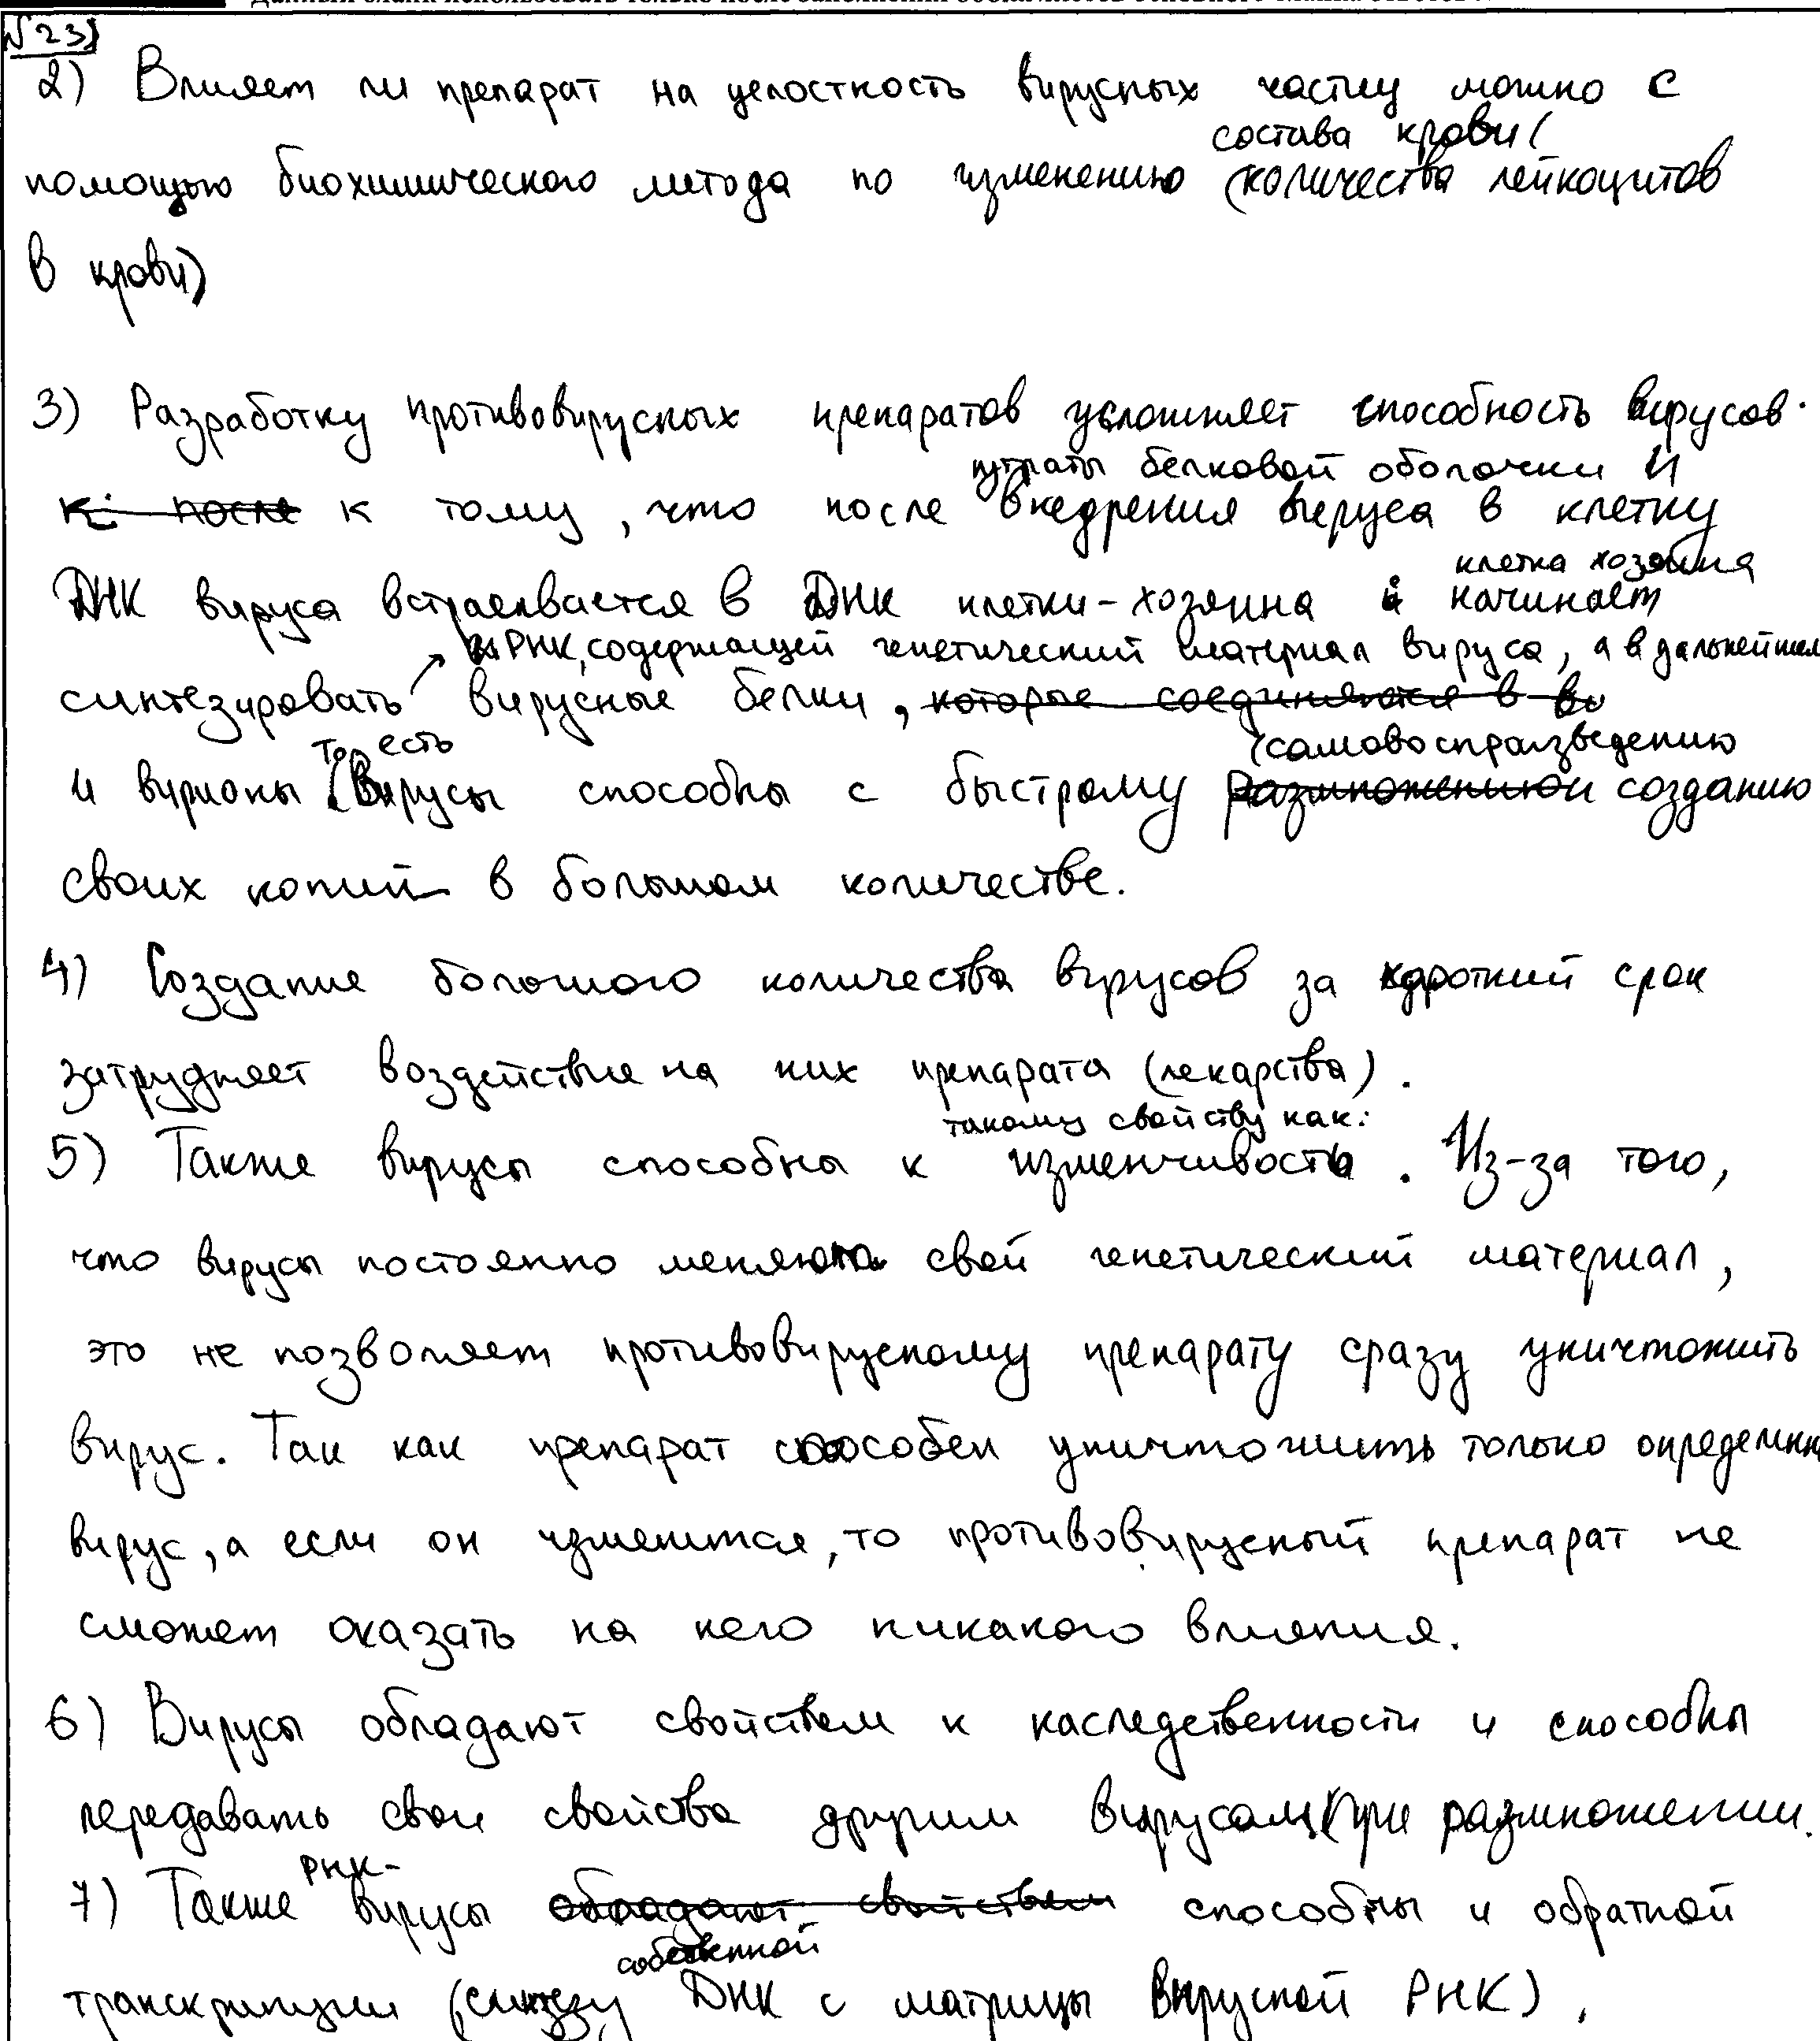 №23)
2) Влияет ли препарат на целостность вирусных частиц можно с
состава крови (
помощью биохимического метода по изменению (количества лейкоцитов
в крови)
3) Разработку противовирусных препаратов усложняет способность вирусов
утраты белковой оболочки и
к после к тому, что после внедрения вируса в клетку
клетка хозяина
ДНК вируса встраивается в ДНК клетки-хозяина и начинает
иРНК, содержащей генетический материал вируса, а в дальнейшем
синтезировать вирусные белки, которые соединяются в ви
то есть самовоспроизведению
и вирионы. (Вирусы способны с быстрому размножению и созданию
своих копий в большом количестве.
4) Создание большого количества вирусов за короткий срок
затрудняет воздействие на них препарата (лекарства).
такому свойству как:
5) Также вирусы способны к изменчивость. Из-за того,
что вирусы постоянно меняют свой генетический материал,
это не позволяет противовирусному препарату сразу уничтожить
вирус. Так как препарат способен уничтожить только определенн
вирус, а если он изменится, то противовирусный препарат не
сможет оказать на него никакого влияния.
6) Вирусы обладают свойством к наследственности и способны
передавать свои свойства другим вирусам при размножении.
РНК-
7) Также вирусы обладают свойством способны и обратной
собственной
транскрипции (синтезу ДНК с матрицы вирусной РНК),